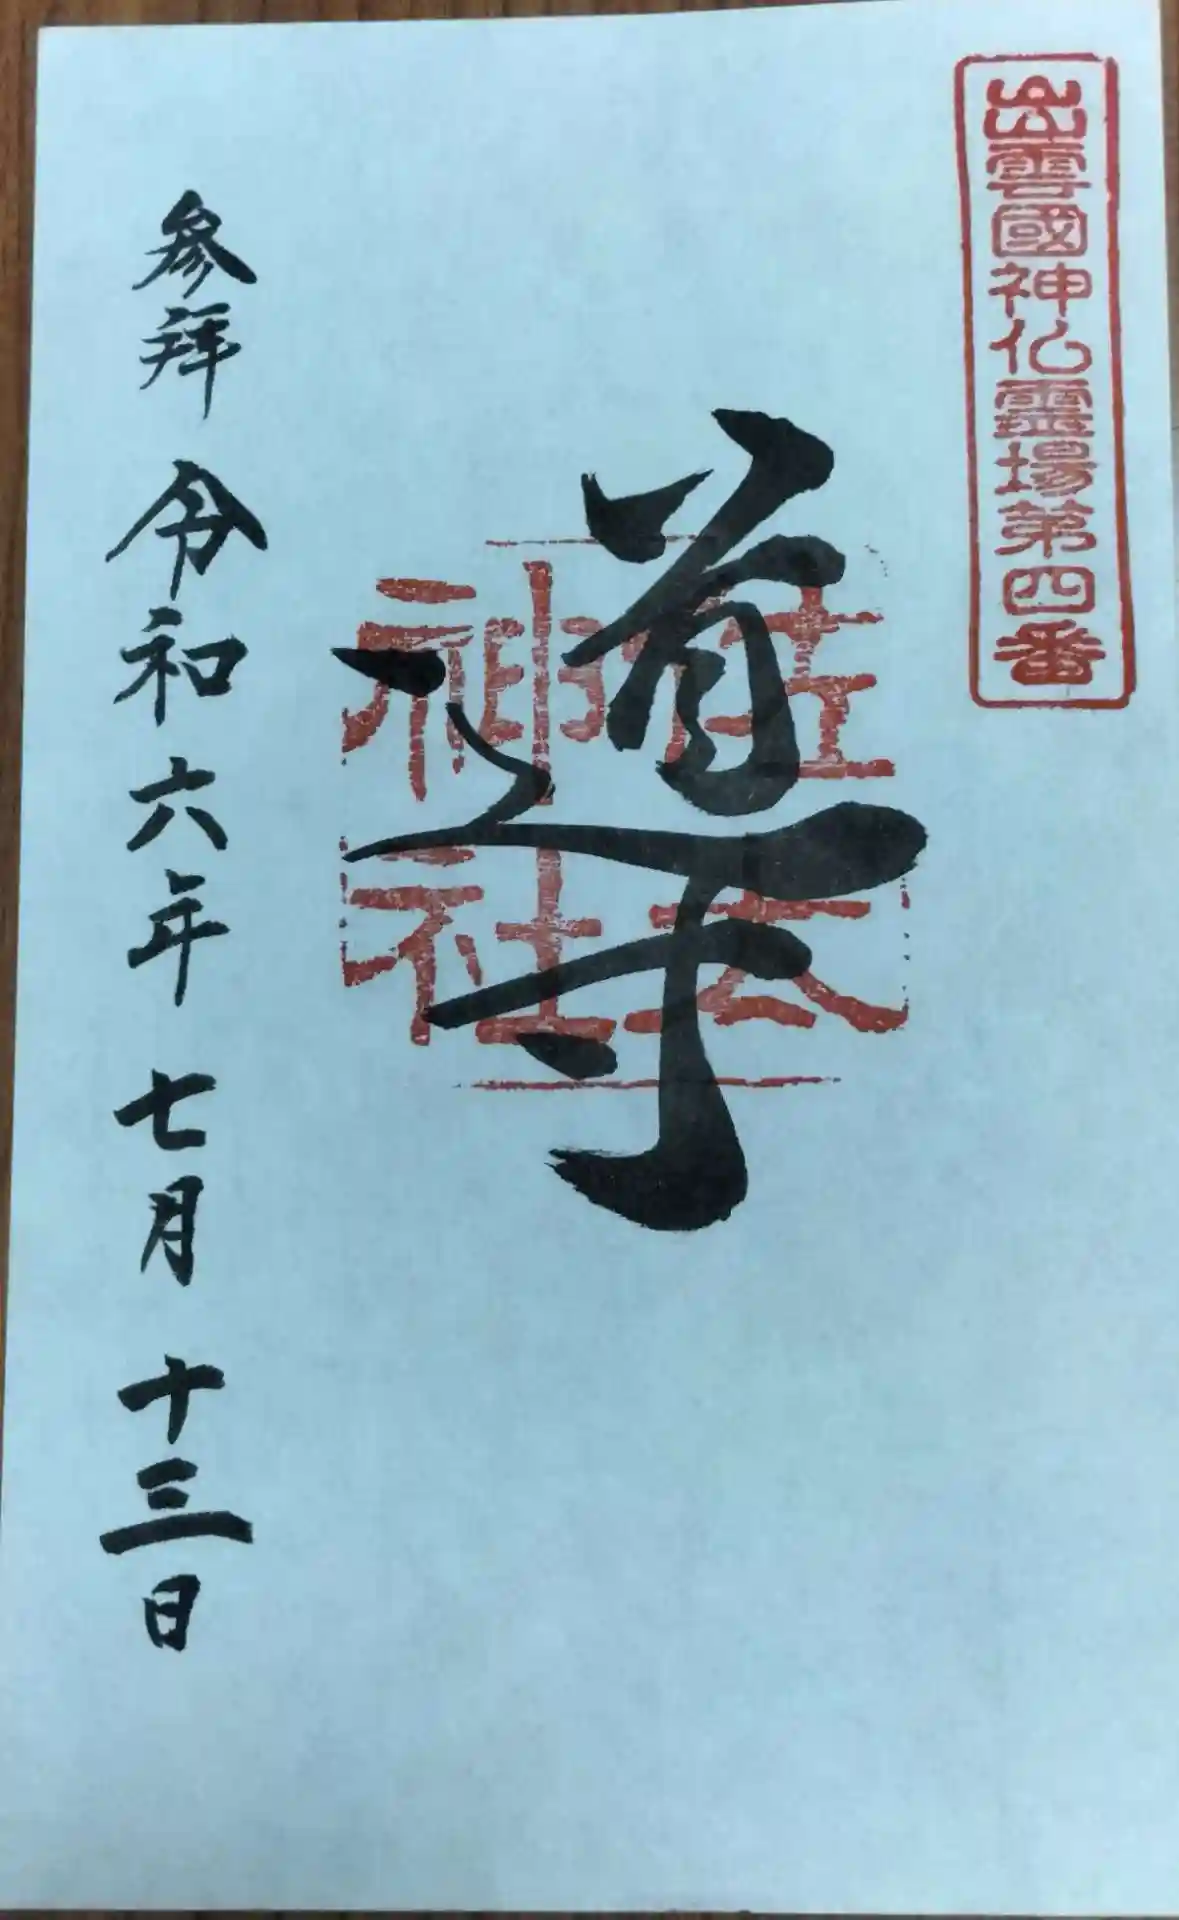 出雲國神仏霊場第四番
導
佐太
神社
参拜 令和六年 七月 十三日